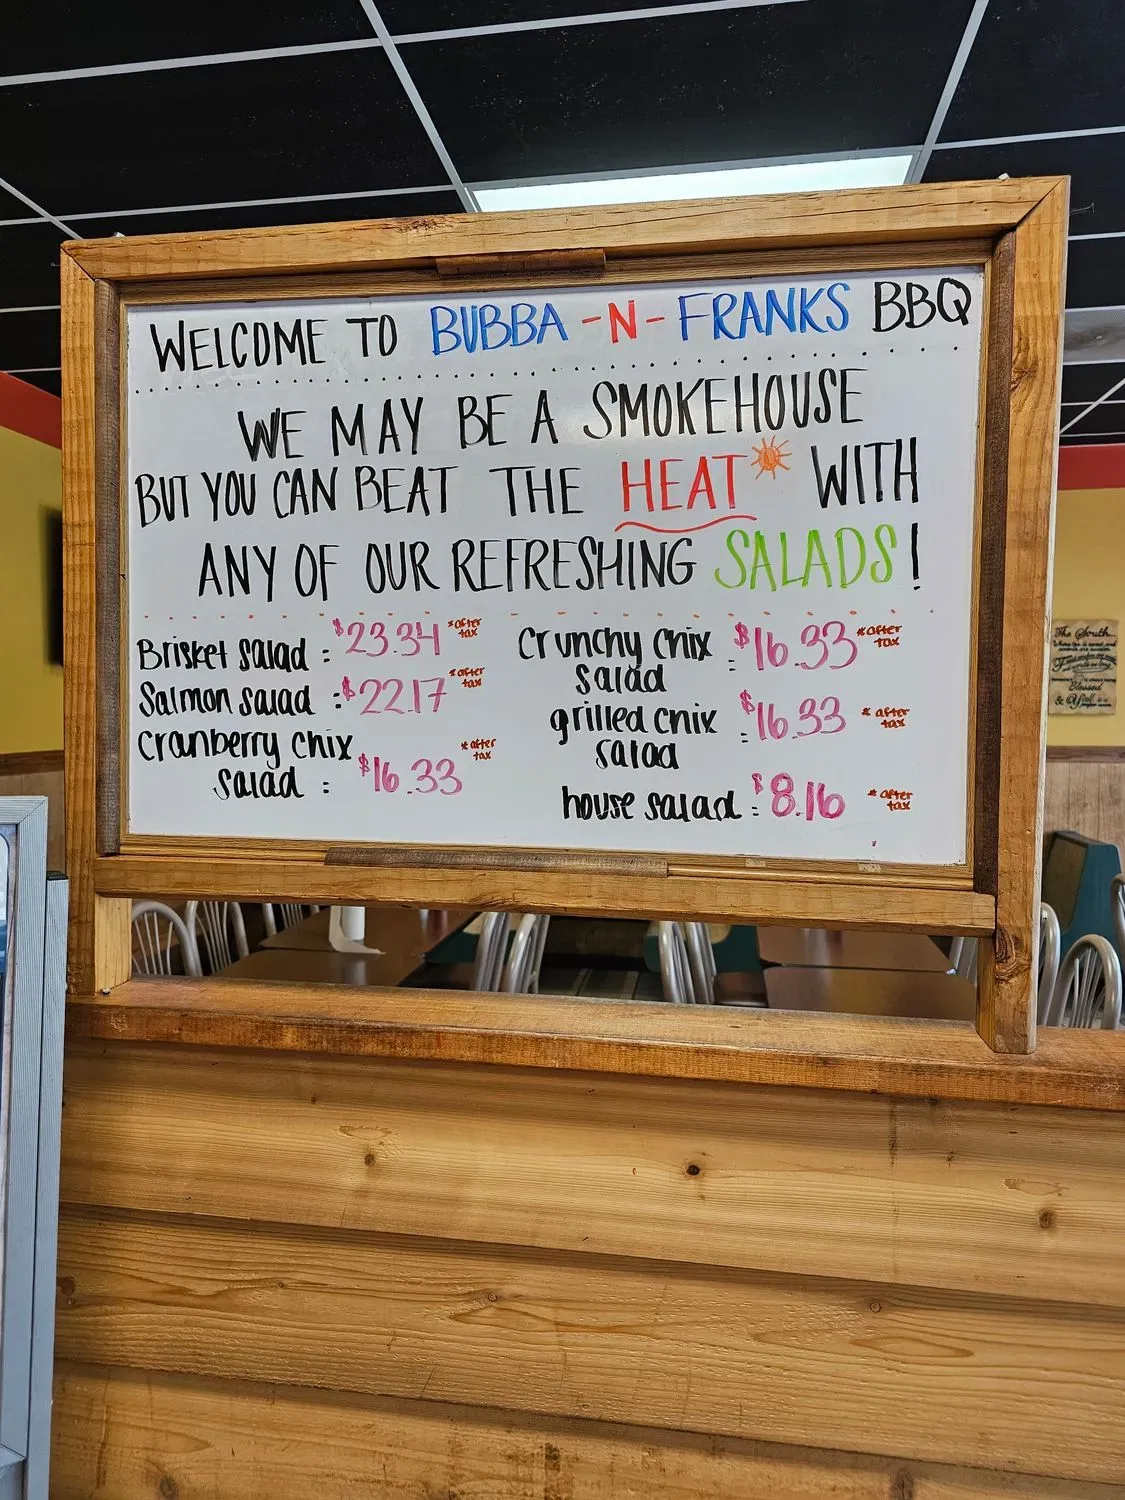 WELCOME TO BUBBA -N- FRANKS BBQ
WE MAY BE A SMOKEHOUSE
BUT YOU CAN BEAT THE HEAT WITH
ANY OF OUR REFRESHING SALADS!
Brisket salad : $23.34 *after tax
Salmon salad : $22.17 *after tax
Cranberry chix
salad : $16.33 *after tax
Crunchy chix
salad : $16.33 *after tax
grilled chix
salad : $16.33 *after tax
house salad : $8.16 *after tax
The South...
Blessed
& Y'all